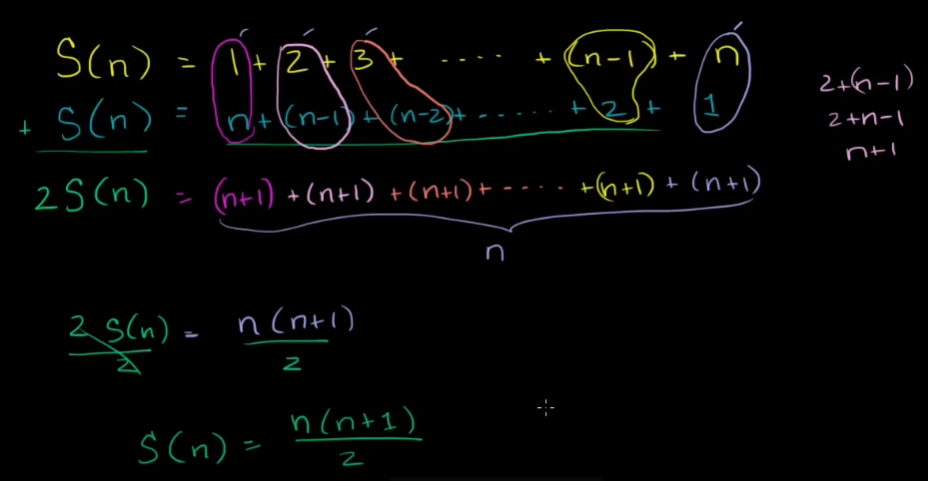 S(n) = 1 + 2 + 3 + ..... + (n-1) + n
+ S(n) = n + (n-1) + (n-2) + ...... + 2 + 1
2S(n) = (n+1) + (n+1) + (n+1) + ..... + (n+1) + (n+1)
n
2+(n-1)
2+n-1
n+1
2 S(n) / 2 = n(n+1) / 2
S(n) = n(n+1) / 2